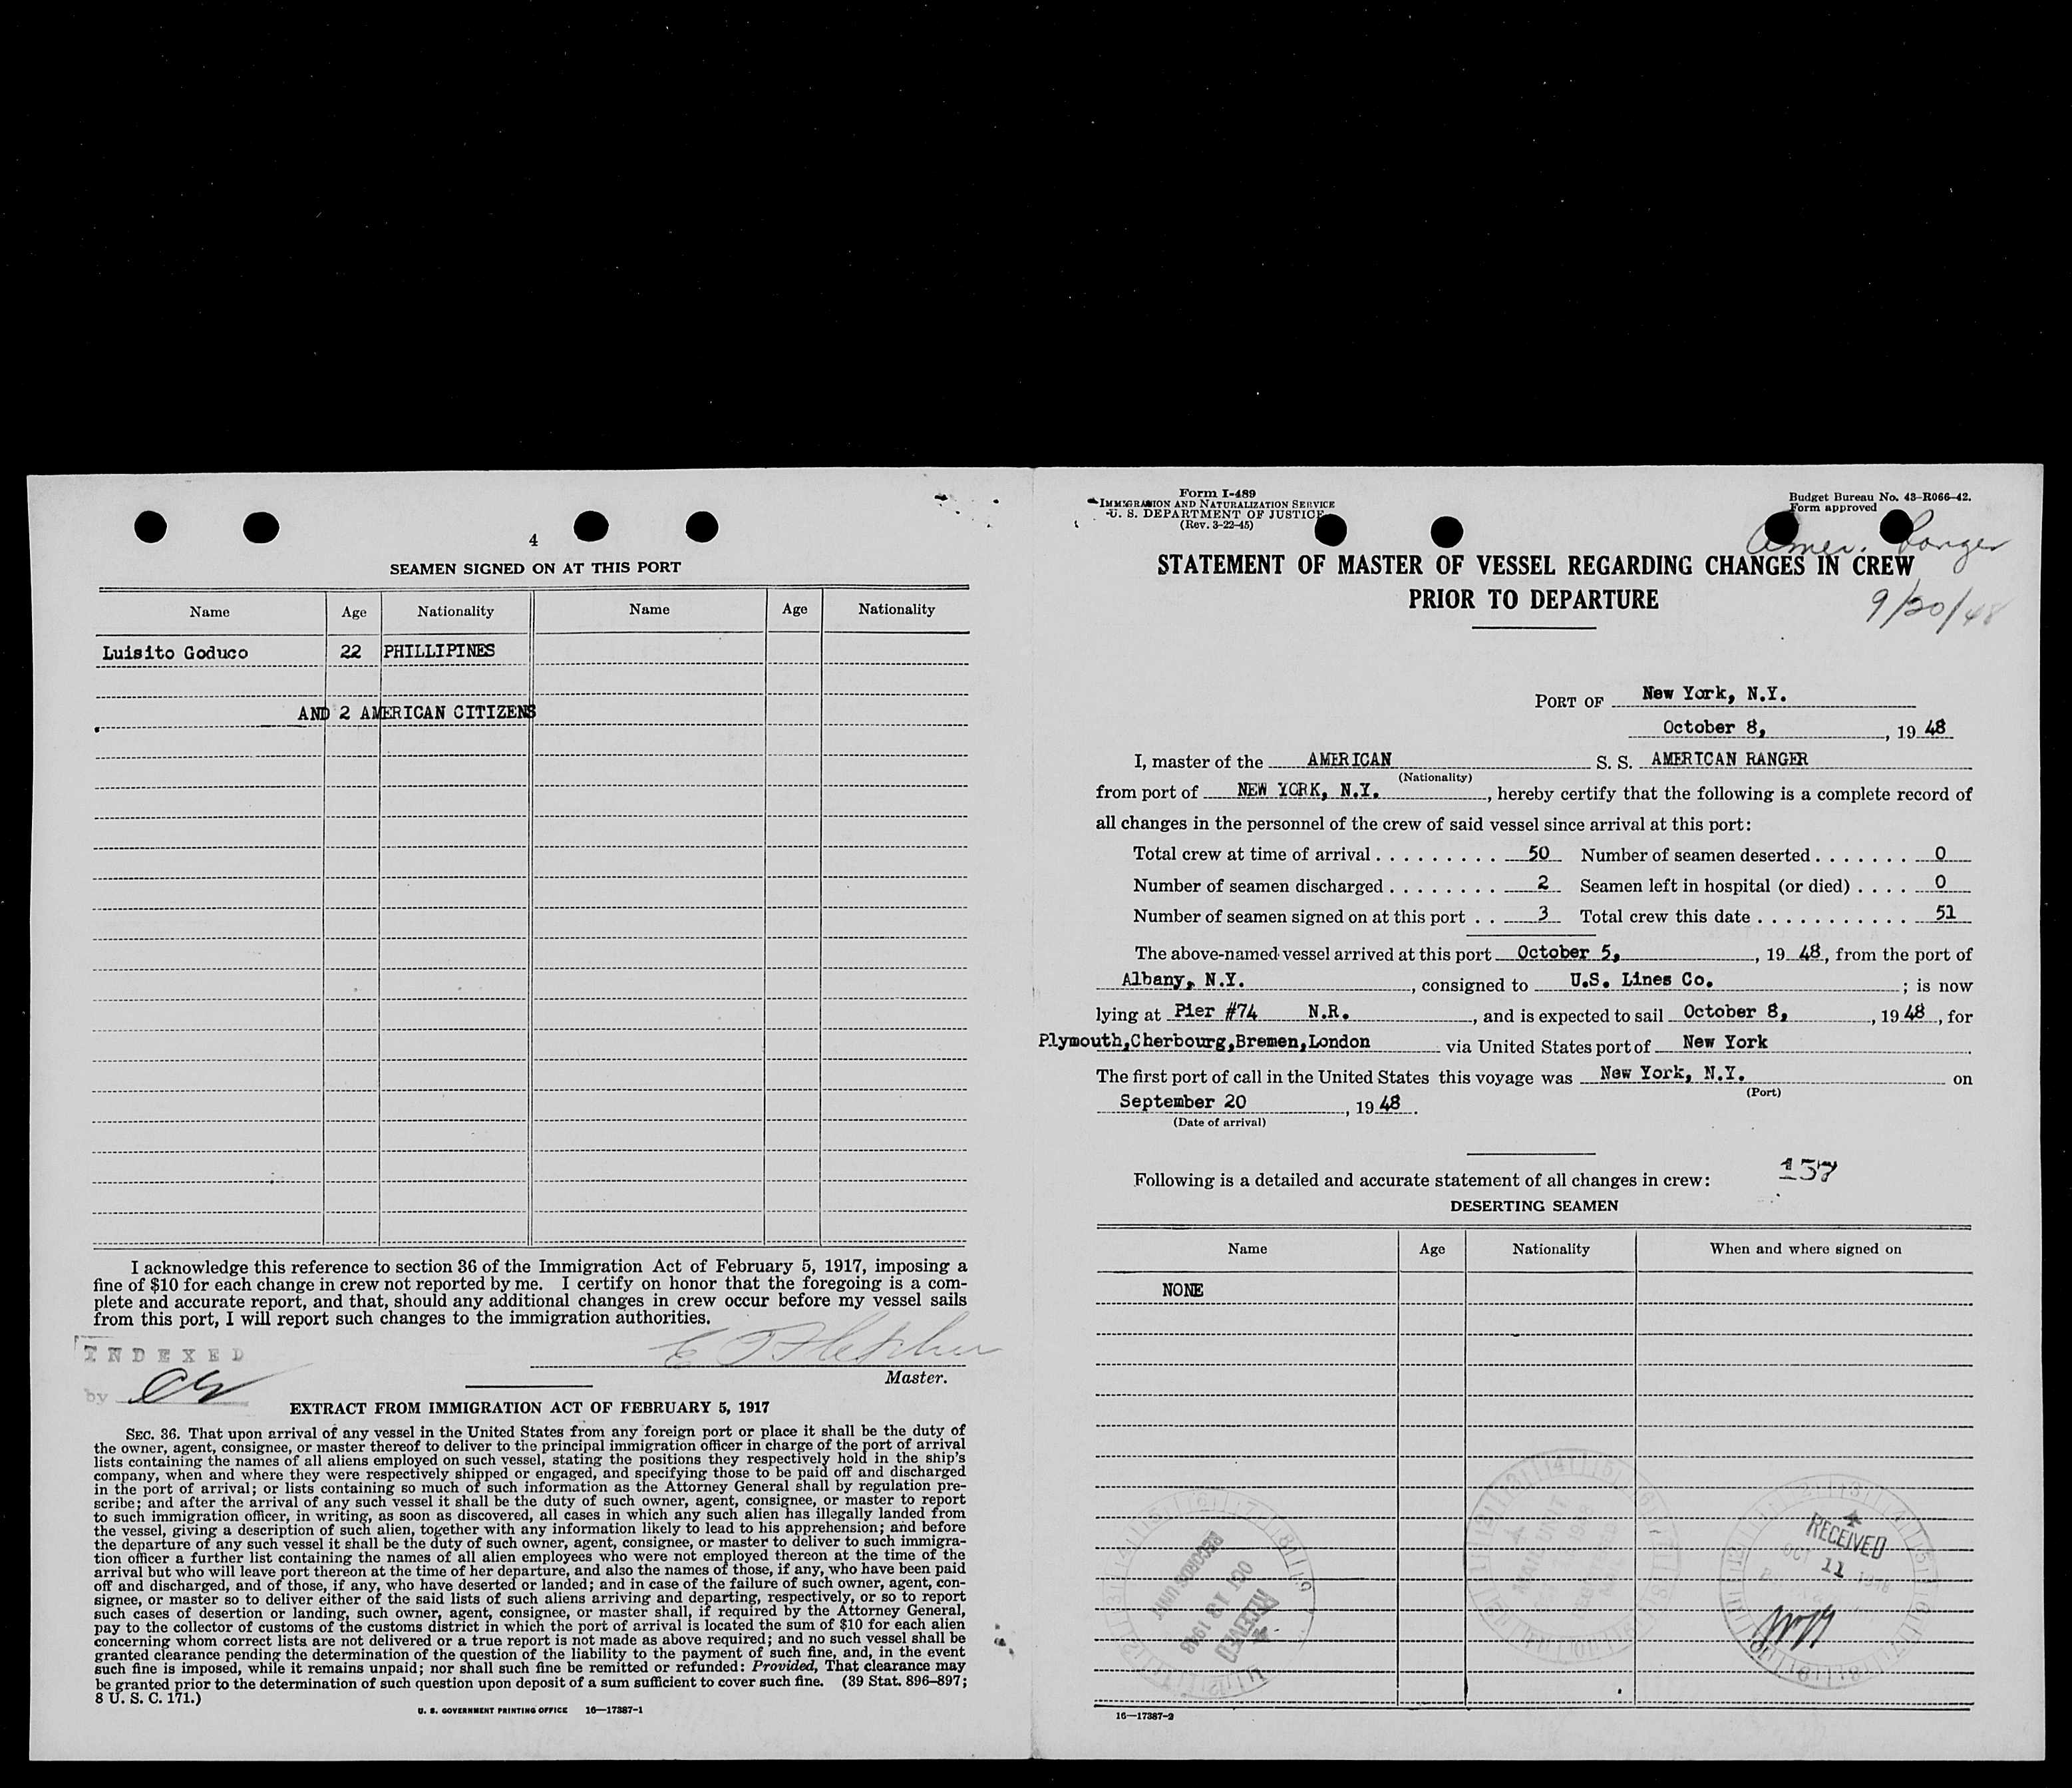 4
SEAMEN SIGNED ON AT THIS PORT
Name Age Nationality Name Age Nationality
Luisito Goduco 22 PHILLIPINES
AND 2 AMERICAN CITIZENS
I acknowledge this reference to section 36 of the Immigration Act of February 5, 1917, imposing a
fine of $10 for each change in crew not reported by me. I certify on honor that the foregoing is a com-
plete and accurate report, and that, should any additional changes in crew occur before my vessel sails
from this port, I will report such changes to the immigration authorities.
INDEXED
by
Master.
EXTRACT FROM IMMIGRATION ACT OF FEBRUARY 5, 1917
SEC. 36. That upon arrival of any vessel in the United States from any foreign port or place it shall be the duty of
the owner, agent, consignee, or master thereof to deliver to the principal immigration officer in charge of the port of arrival
lists containing the names of all aliens employed on such vessel, stating the positions they respectively hold in the ship's
company, when and where they were respectively shipped or engaged, and specifying those to be paid off and discharged
in the port of arrival; or lists containing so much of such information as the Attorney General shall by regulation pre-
scribe; and after the arrival of any such vessel it shall be the duty of such owner, agent, consignee, or master to report
to such immigration officer, in writing, as soon as discovered, all cases in which any such alien has illegally landed from
the vessel, giving a description of such alien, together with any information likely to lead to his apprehension; and before
the departure of any such vessel it shall be the duty of such owner, agent, consignee, or master to deliver to such immigra-
tion officer a further list containing the names of all alien employees who were not employed thereon at the time of the
arrival but who will leave port thereon at the time of her departure, and also the names of those, if any, who have been paid
off and discharged, and of those, if any, who have deserted or landed; and in case of the failure of such owner, agent, con-
signee, or master so to deliver either of the said lists of such aliens arriving and departing, respectively, or so to report
such cases of desertion or landing, such owner, agent, consignee, or master shall, if required by the Attorney General,
pay to the collector of customs of the customs district in which the port of arrival is located the sum of $10 for each alien
concerning whom correct lists are not delivered or a true report is not made as above required; and no such vessel shall be
granted clearance pending the determination of the question of the liability to the payment of such fine, and, in the event
such fine is imposed, while it remains unpaid; nor shall such fine be remitted or refunded: Provided, That clearance may
be granted prior to the determination of such question upon deposit of a sum sufficient to cover such fine. (39 Stat. 896-897;
8 U. S. C. 171.)
U. S. GOVERNMENT PRINTING OFFICE 16—17387-1
Form I-489
IMMIGRATION AND NATURALIZATION SERVICE
U. S. DEPARTMENT OF JUSTICE
(Rev. 3-22-45)
Budget Bureau No. 43-R066-42.
Form approved
Amer. Ranger
STATEMENT OF MASTER OF VESSEL REGARDING CHANGES IN CREW
PRIOR TO DEPARTURE
9/20/48
PORT OF New York, N.Y.
October 8, , 19 48
I, master of the AMERICAN S. S. AMERICAN RANGER
(Nationality)
from port of NEW YORK, N.Y. , hereby certify that the following is a complete record of
all changes in the personnel of the crew of said vessel since arrival at this port:
Total crew at time of arrival . . . . . . . . . 50 Number of seamen deserted . . . . . . . 0
Number of seamen discharged . . . . . . . . 2 Seamen left in hospital (or died) . . . . 0
Number of seamen signed on at this port . . 3 Total crew this date . . . . . . . . . . . 51
The above-named vessel arrived at this port October 5, , 19 48, from the port of
Albany, N.Y. , consigned to U.S. Lines Co. ; is now
lying at Pier #74 N.R. , and is expected to sail October 8, , 19 48 , for
Plymouth,Cherbourg,Bremen,London via United States port of New York
The first port of call in the United States this voyage was New York, N.Y. on
(Port)
September 20 , 19 48 .
(Date of arrival)
157
Following is a detailed and accurate statement of all changes in crew:
DESERTING SEAMEN
Name Age Nationality When and where signed on
NONE
RECEIVED
OCT 18 1948
RECORDS UNIT
MAIL UNIT
RECEIVED
OCT 11 1948
16—17387-2